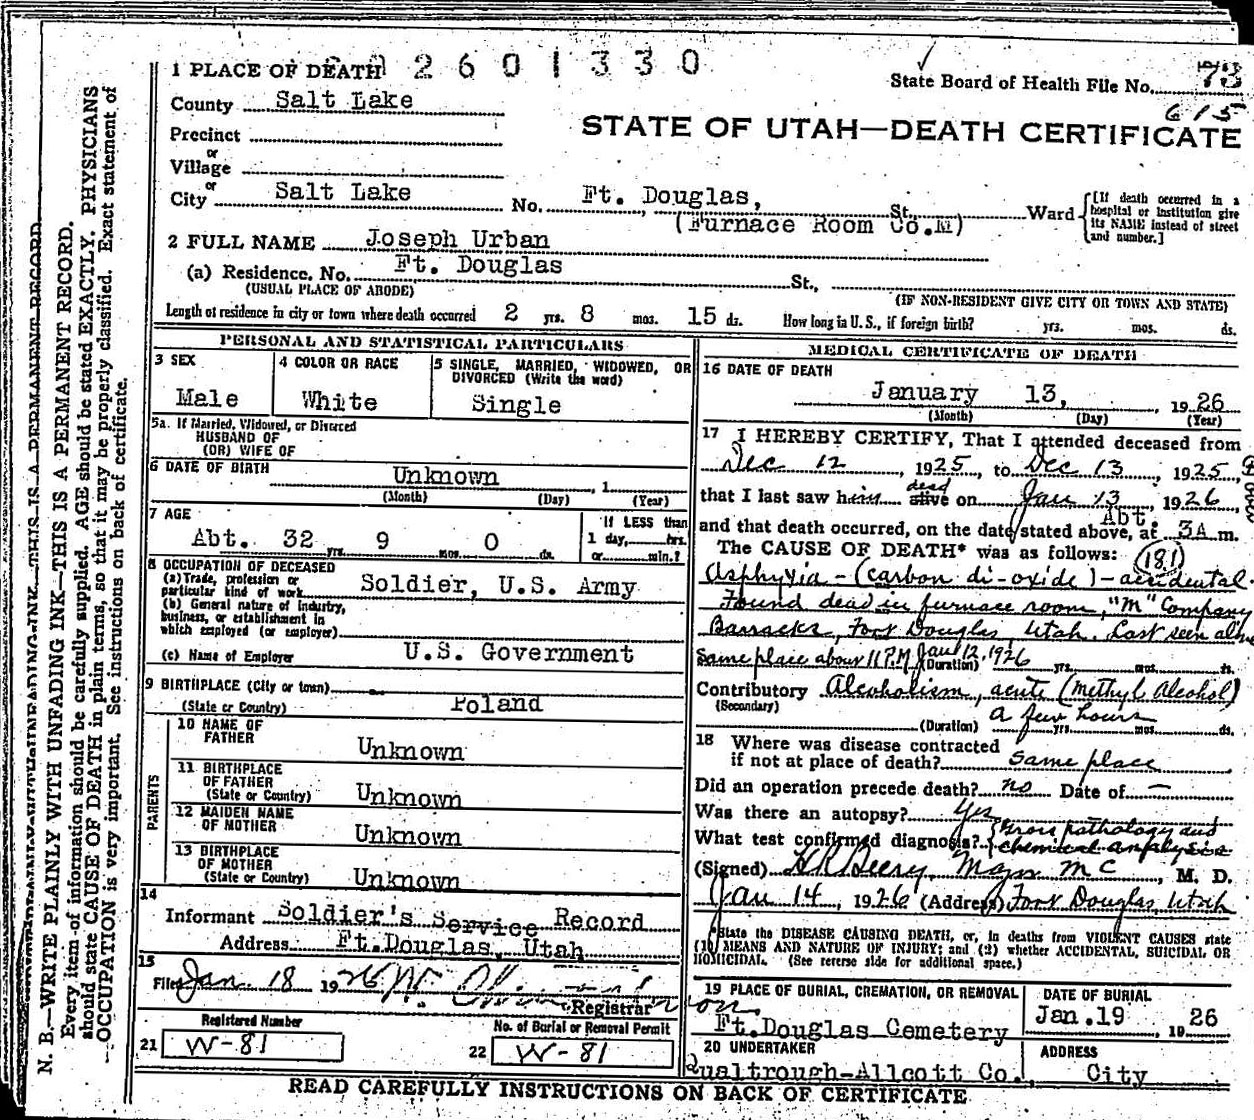 1 PLACE OF DEATH 2 6 0 1 3 3 0
State Board of Health File No. 73
County Salt Lake
615
STATE OF UTAH—DEATH CERTIFICATE
Precinct
or
Village
or
City Salt Lake No. Ft. Douglas, St., Ward
(Furnace Room Co.M)
[If death occurred in a
hospital or institution give
its NAME instead of street
and number.]
2 FULL NAME Joseph Urban
(a) Residence. No. Ft. Douglas St.,
(USUAL PLACE OF ABODE)
(IF NON-RESIDENT GIVE CITY OR TOWN AND STATE)
Length of residence in city or town where death occurred 2 yrs. 8 mos. 15 ds. How long in U.S., if foreign birth? yrs. mos. ds.
PERSONAL AND STATISTICAL PARTICULARS
3 SEX
Male
4 COLOR OR RACE
White
5 SINGLE, MARRIED, WIDOWED, OR
DIVORCED (Write the word)
Single
5a. If Married, Widowed, or Divorced
HUSBAND OF
(OR) WIFE OF
6 DATE OF BIRTH Unknown , 1
(Month) (Day) (Year)
7 AGE
Abt. 32 yrs. 9 mos. 0 ds.
If LESS than
1 day, hrs.
or min.?
8 OCCUPATION OF DECEASED
(a) Trade, profession or
particular kind of work Soldier, U.S. Army
(b) General nature of industry,
business, or establishment in
which employed (or employer)
(c) Name of Employer U.S. Government
9 BIRTHPLACE (City or town)
(State or Country) Poland
PARENTS
10 NAME OF
FATHER Unknown
11 BIRTHPLACE
OF FATHER
(State or Country) Unknown
12 MAIDEN NAME
OF MOTHER Unknown
13 BIRTHPLACE
OF MOTHER
(State or Country) Unknown
14
Informant Soldier's Service Record
Address Ft.Douglas, Utah
15
Filed Jan. 18 1926
Registrar
Registered Number
21 W-81
No. of Burial or Removal Permit
22 W-81
MEDICAL CERTIFICATE OF DEATH
16 DATE OF DEATH
January 13, , 1926
(Month) (Day) (Year)
17 I HEREBY CERTIFY, That I attended deceased from
Dec 12 , 1925, to Dec 13 , 1925,
that I last saw him alive dead on Jan 13 , 1926,
and that death occurred, on the date stated above, at Abt. 3A m.
The CAUSE OF DEATH* was as follows: (181)
Asphyxia - (carbon di-oxide) - accidental.
Found dead in furnace room, "M" Company
Barracks, Fort Douglas, Utah. Last seen alive
same place about 11 P.M Jan 12, 1926
(Duration) yrs. mos. ds.
Contributory Alcoholism, acute (Methyl Alcohol)
(Secondary)
a few hours
(Duration) yrs. mos. ds.
18 Where was disease contracted
if not at place of death? same place
Did an operation precede death? no Date of —
Was there an autopsy? Yes
What test confirmed diagnosis? {Gross pathology and
chemical analysis
(Signed) H R Beery, Major M C , M. D.
Jan 14 , 1926 (Address) Fort Douglas, Utah
*State the DISEASE CAUSING DEATH, or, in deaths from VIOLENT CAUSES state
(1) MEANS AND NATURE OF INJURY; and (2) whether ACCIDENTAL, SUICIDAL OR
HOMICIDAL. (See reverse side for additional space.)
19 PLACE OF BURIAL, CREMATION, OR REMOVAL
Ft.Douglas Cemetery
DATE OF BURIAL
Jan.19 , 1926
20 UNDERTAKER
Qualtrough-Allcott Co.,
ADDRESS
City
READ CAREFULLY INSTRUCTIONS ON BACK OF CERTIFICATE
N. B.—WRITE PLAINLY WITH UNFADING INK—THIS IS A PERMANENT RECORD.
Every item of information should be carefully supplied. AGE should be stated EXACTLY. PHYSICIANS
should state CAUSE OF DEATH in plain terms, so that it may be properly classified. Exact statement of
OCCUPATION is very important. See instructions on back of certificate.